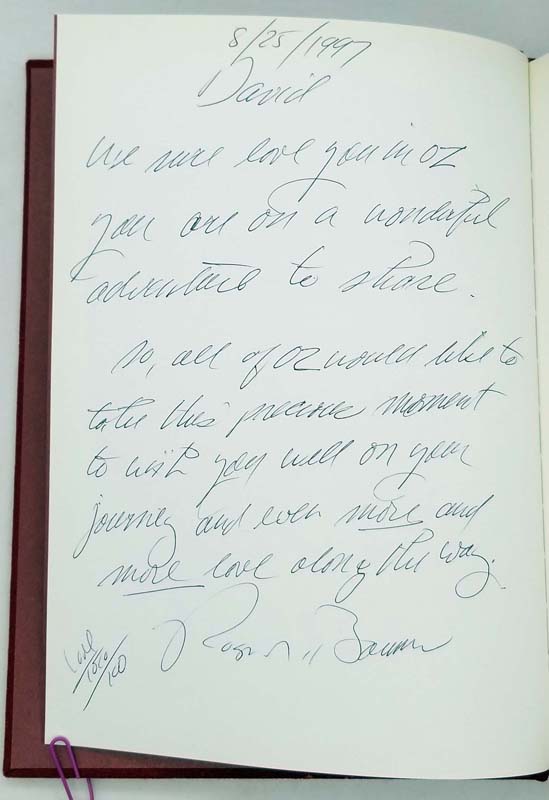 8/25/1997
David
We sure love you in OZ
you are on a wonderful
adventure to share.
So, all of OZ would like to
take this precious moment
to wish you well on your
journey and even more and
more love along the way.
Roger S. Baum